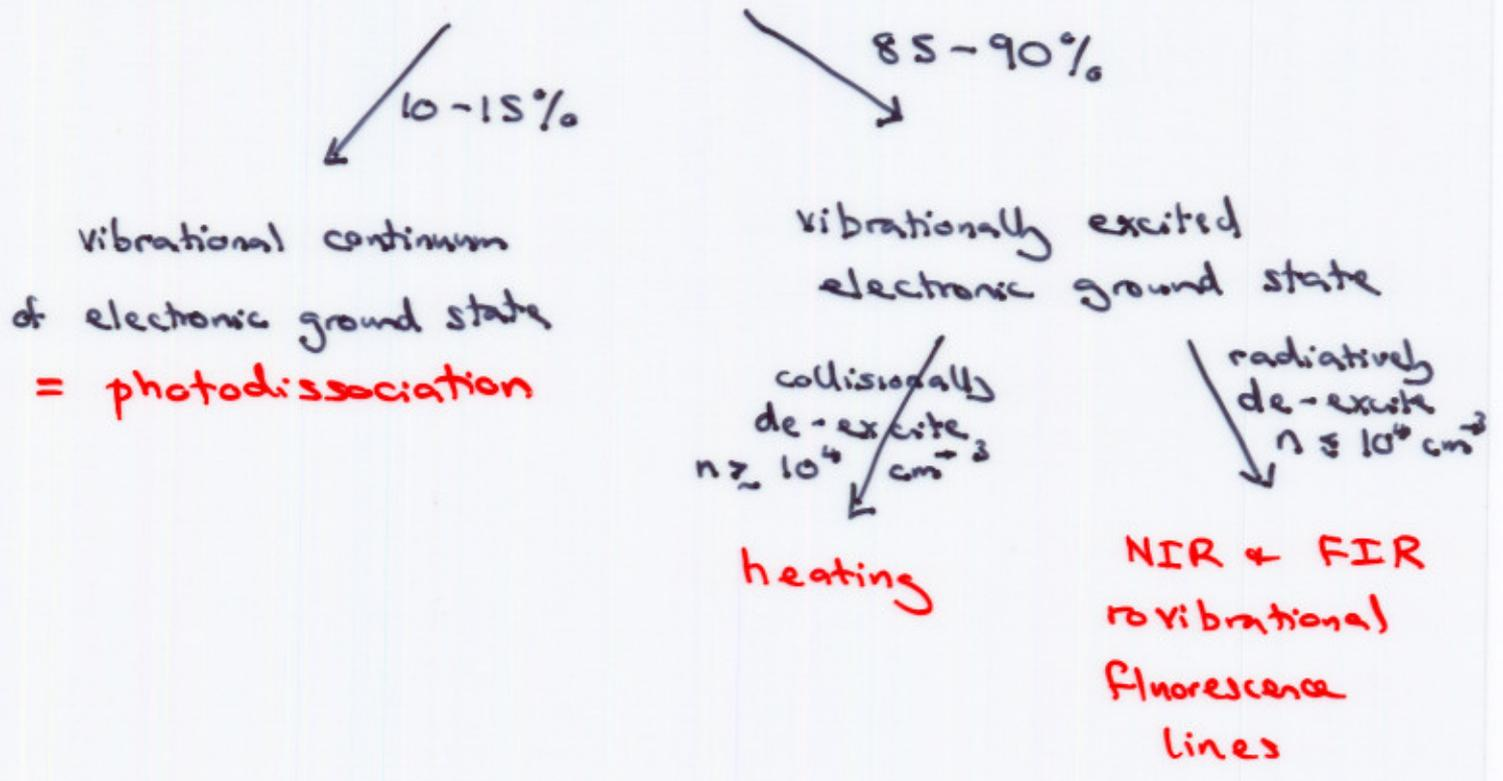 10-15%
85-90%
vibrational continuum
of electronic ground state
= photodissociation
vibrationally excited
electronic ground state
collisionally
de-excite
n ≳ 10⁴ cm⁻³
heating
radiatively
de-excite
n ≲ 10⁴ cm⁻³
NIR & FIR
rovibrational
fluorescence
lines